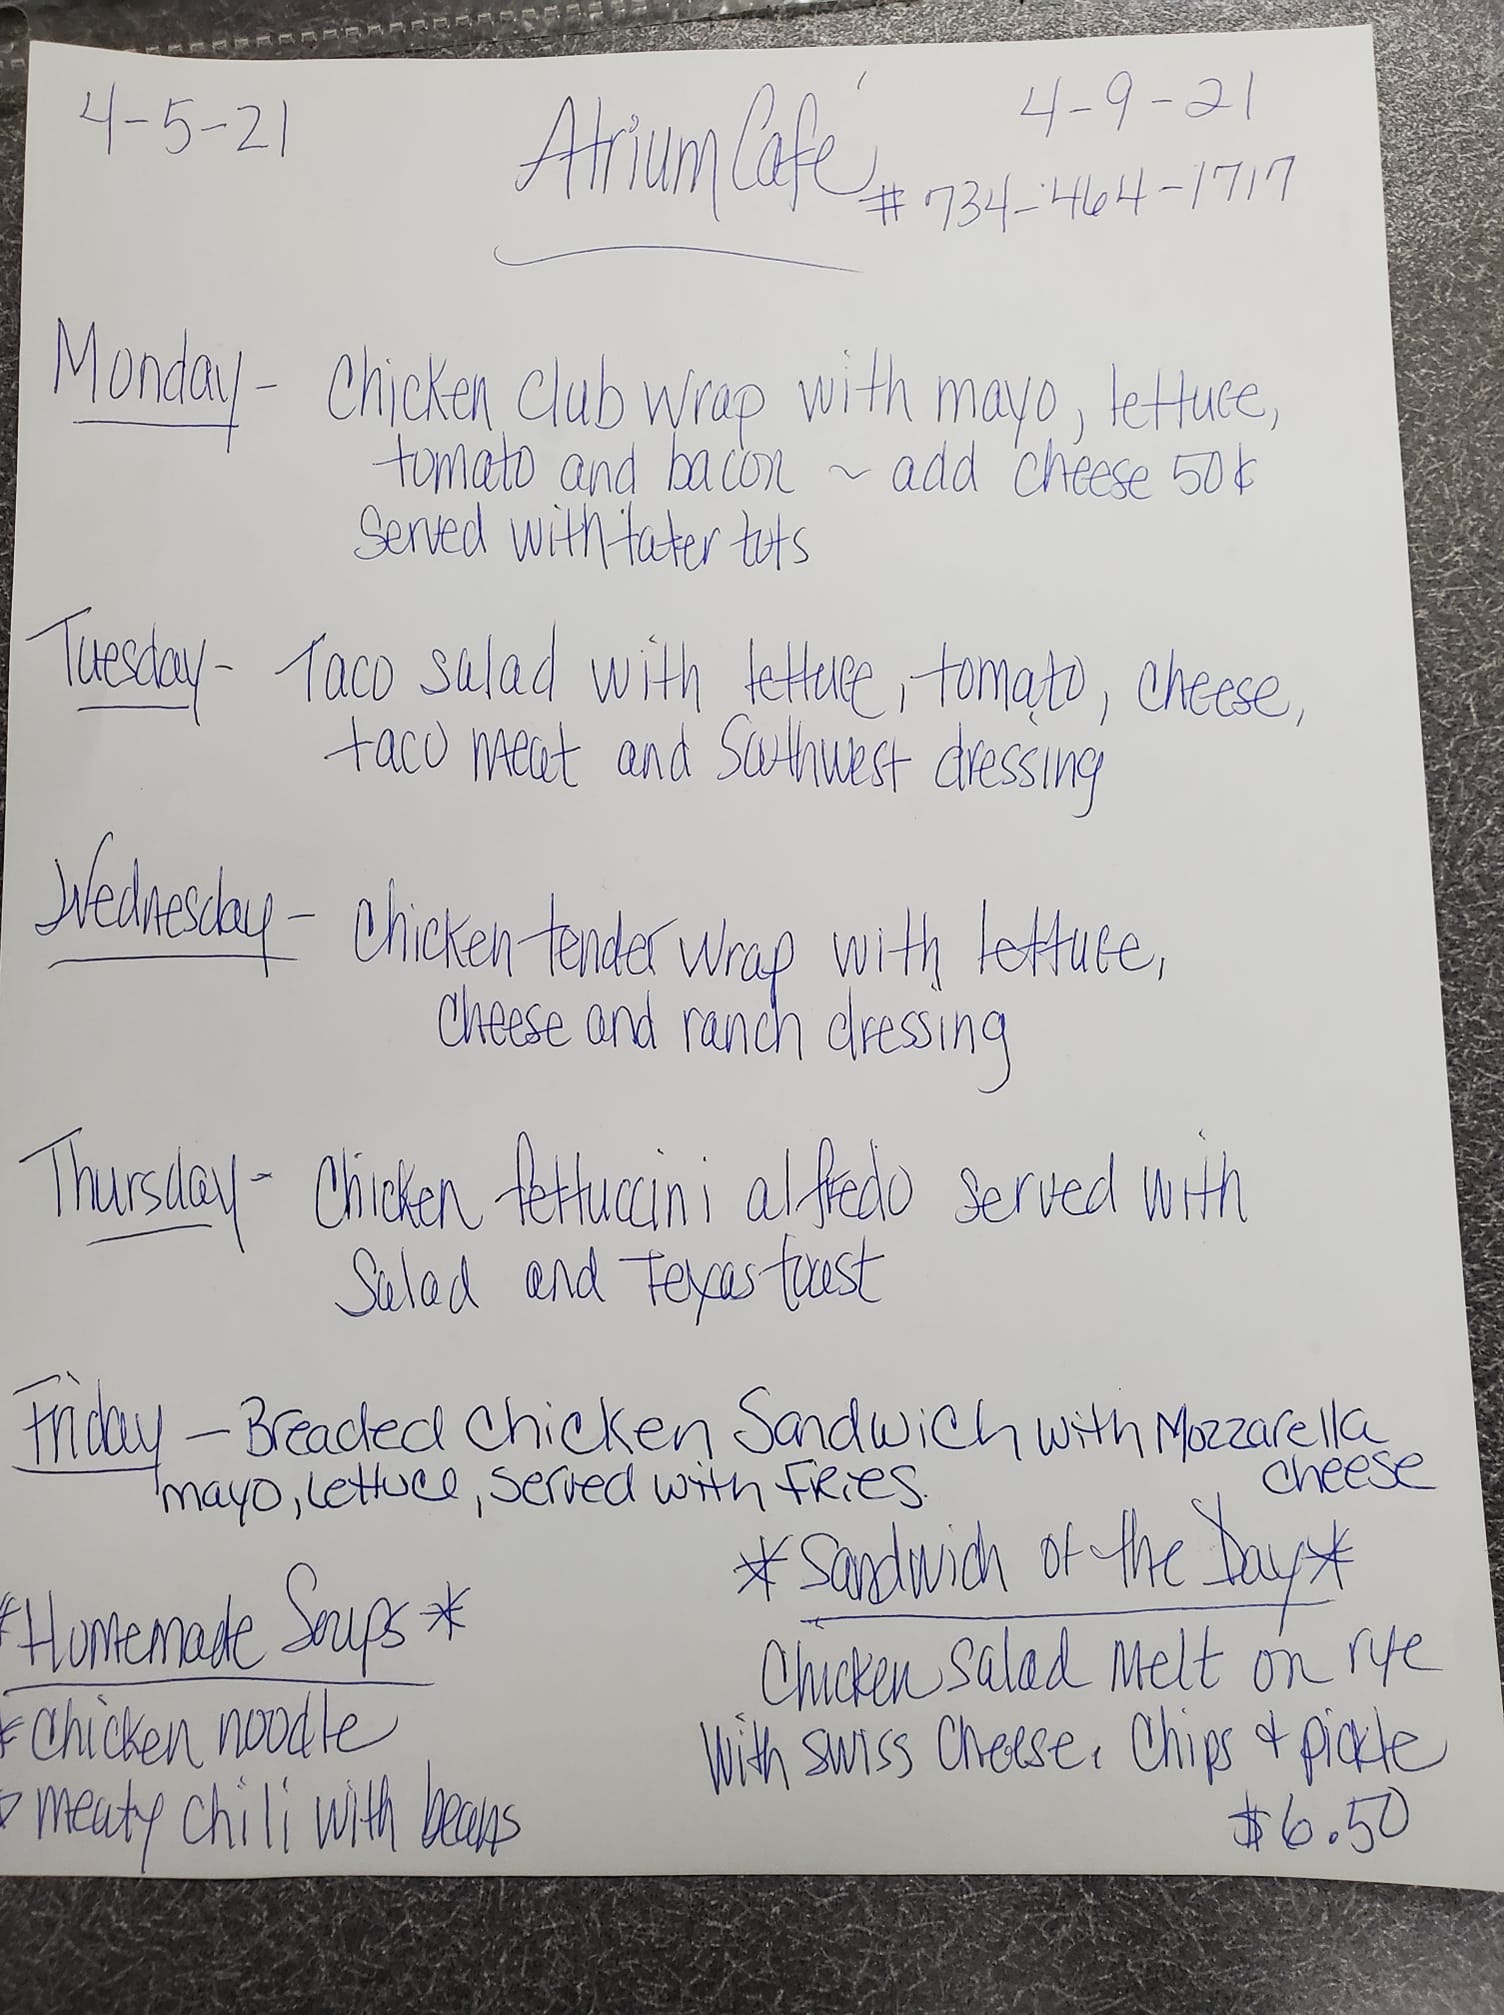 4-5-21
Atrium Café
4-9-21
# 734-464-1717
Monday- Chicken Club Wrap with mayo, lettuce,
tomato and bacon ~ add cheese 50¢
Served with tater tots
Tuesday- Taco salad with lettuce, tomato, cheese,
taco meat and Southwest dressing
Wednesday- Chicken tender wrap with lettuce,
cheese and ranch dressing
Thursday- Chicken fettuccini alfredo served with
Salad and Texas toast
Friday - Breaded Chicken Sandwich with Mozzarella
cheese
mayo, Lettuce, Served with Fries.
*Sandwich of the Day*
Chicken Salad Melt on rye
With Swiss Cheese. Chips & pickle
$6.50
*Homemade Soups*
* Chicken noodle
* meaty chili with beans